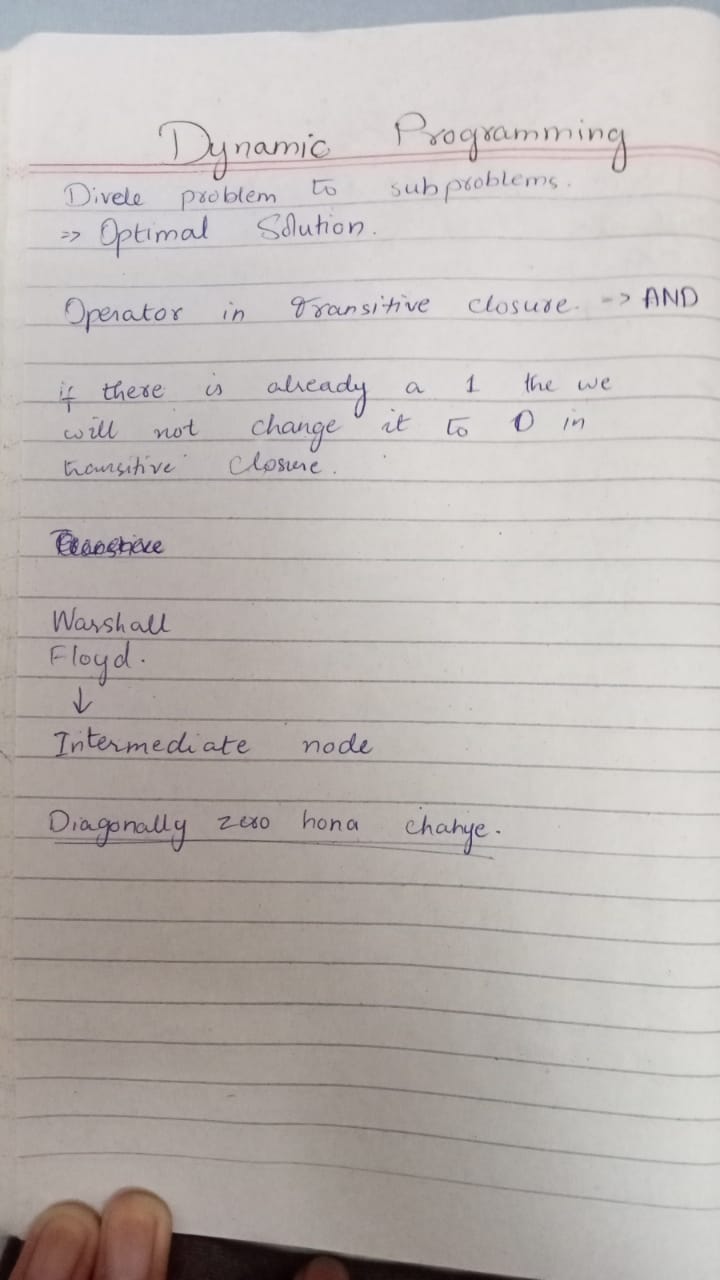 Dynamic Programming
Divele problem to subproblems.
=> Optimal Solution.
Operator in transitive closure. -> AND
if there is already a 1 the we
will not change it to 0 in
transitive closure.
Warshall
Floyd.
↓
Intermediate node
Diagonally zero hona chahye.